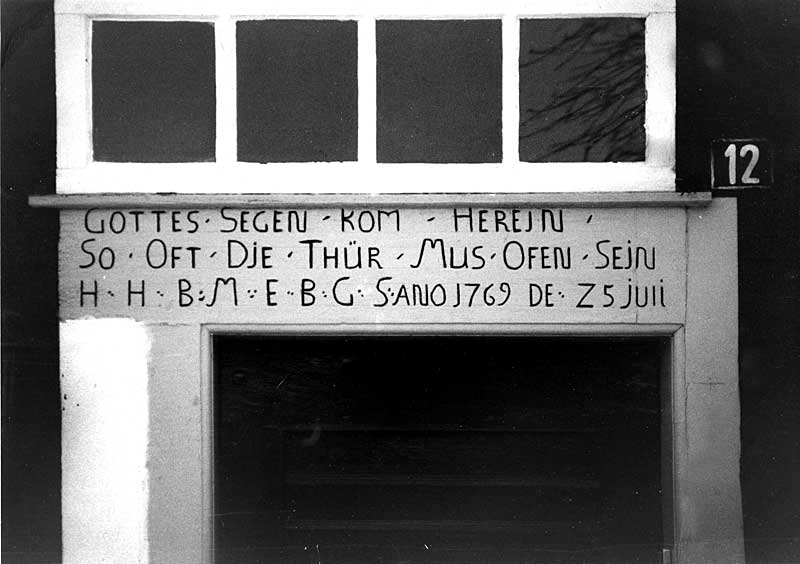 12
GOTTES · SEGEN · KOM · HEREJN ·
SO · OFT · DJE · THÜR · MUS · OFEN · SEJN
H · H · B · M · E · B · G · S · ANO 1769 DE · Z5 JULI